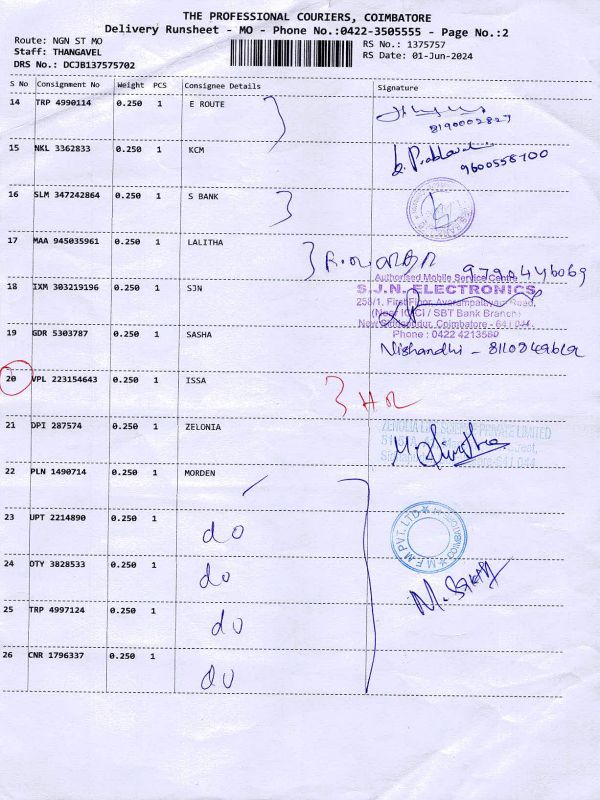 THE PROFESSIONAL COURIERS, COIMBATORE
Delivery Runsheet - MO - Phone No.:0422-3505555 - Page No.:2
Route: NGN ST MO
Staff: THANGAVEL
DRS No.: DCJB137575702
RS No.: 1375757
RS Date: 01-Jun-2024
S No Consignment No Weight PCS Consignee Details Signature
14 TRP 4990114 0.250 1 E ROUTE
8190002827
15 NKL 3362833 0.250 1 KCM
9600558700
16 SLM 347242864 0.250 1 S BANK
17 MAA 945035961 0.250 1 LALITHA
9790446069
18 IXM 303219196 0.250 1 SJN
Authorised Mobile Service Centre
S.J.N. ELECTRONICS
258/1, First Floor, Avarampalayam Road,
(Near ICICI / SBT Bank Branch)
New Siddhapudur, Coimbatore - 641 044.
Phone : 0422 4213580
19 GDR 5303787 0.250 1 SASHA
Nishandhi - 8110849619
20 VPL 223154643 0.250 1 ISSA
21 DPI 287574 0.250 1 ZELONIA
22 PLN 1490714 0.250 1 MORDEN
23 UPT 2214890 0.250 1 do
24 OTY 3828533 0.250 1 do
25 TRP 4997124 0.250 1 do
26 CNR 1796337 0.250 1 do